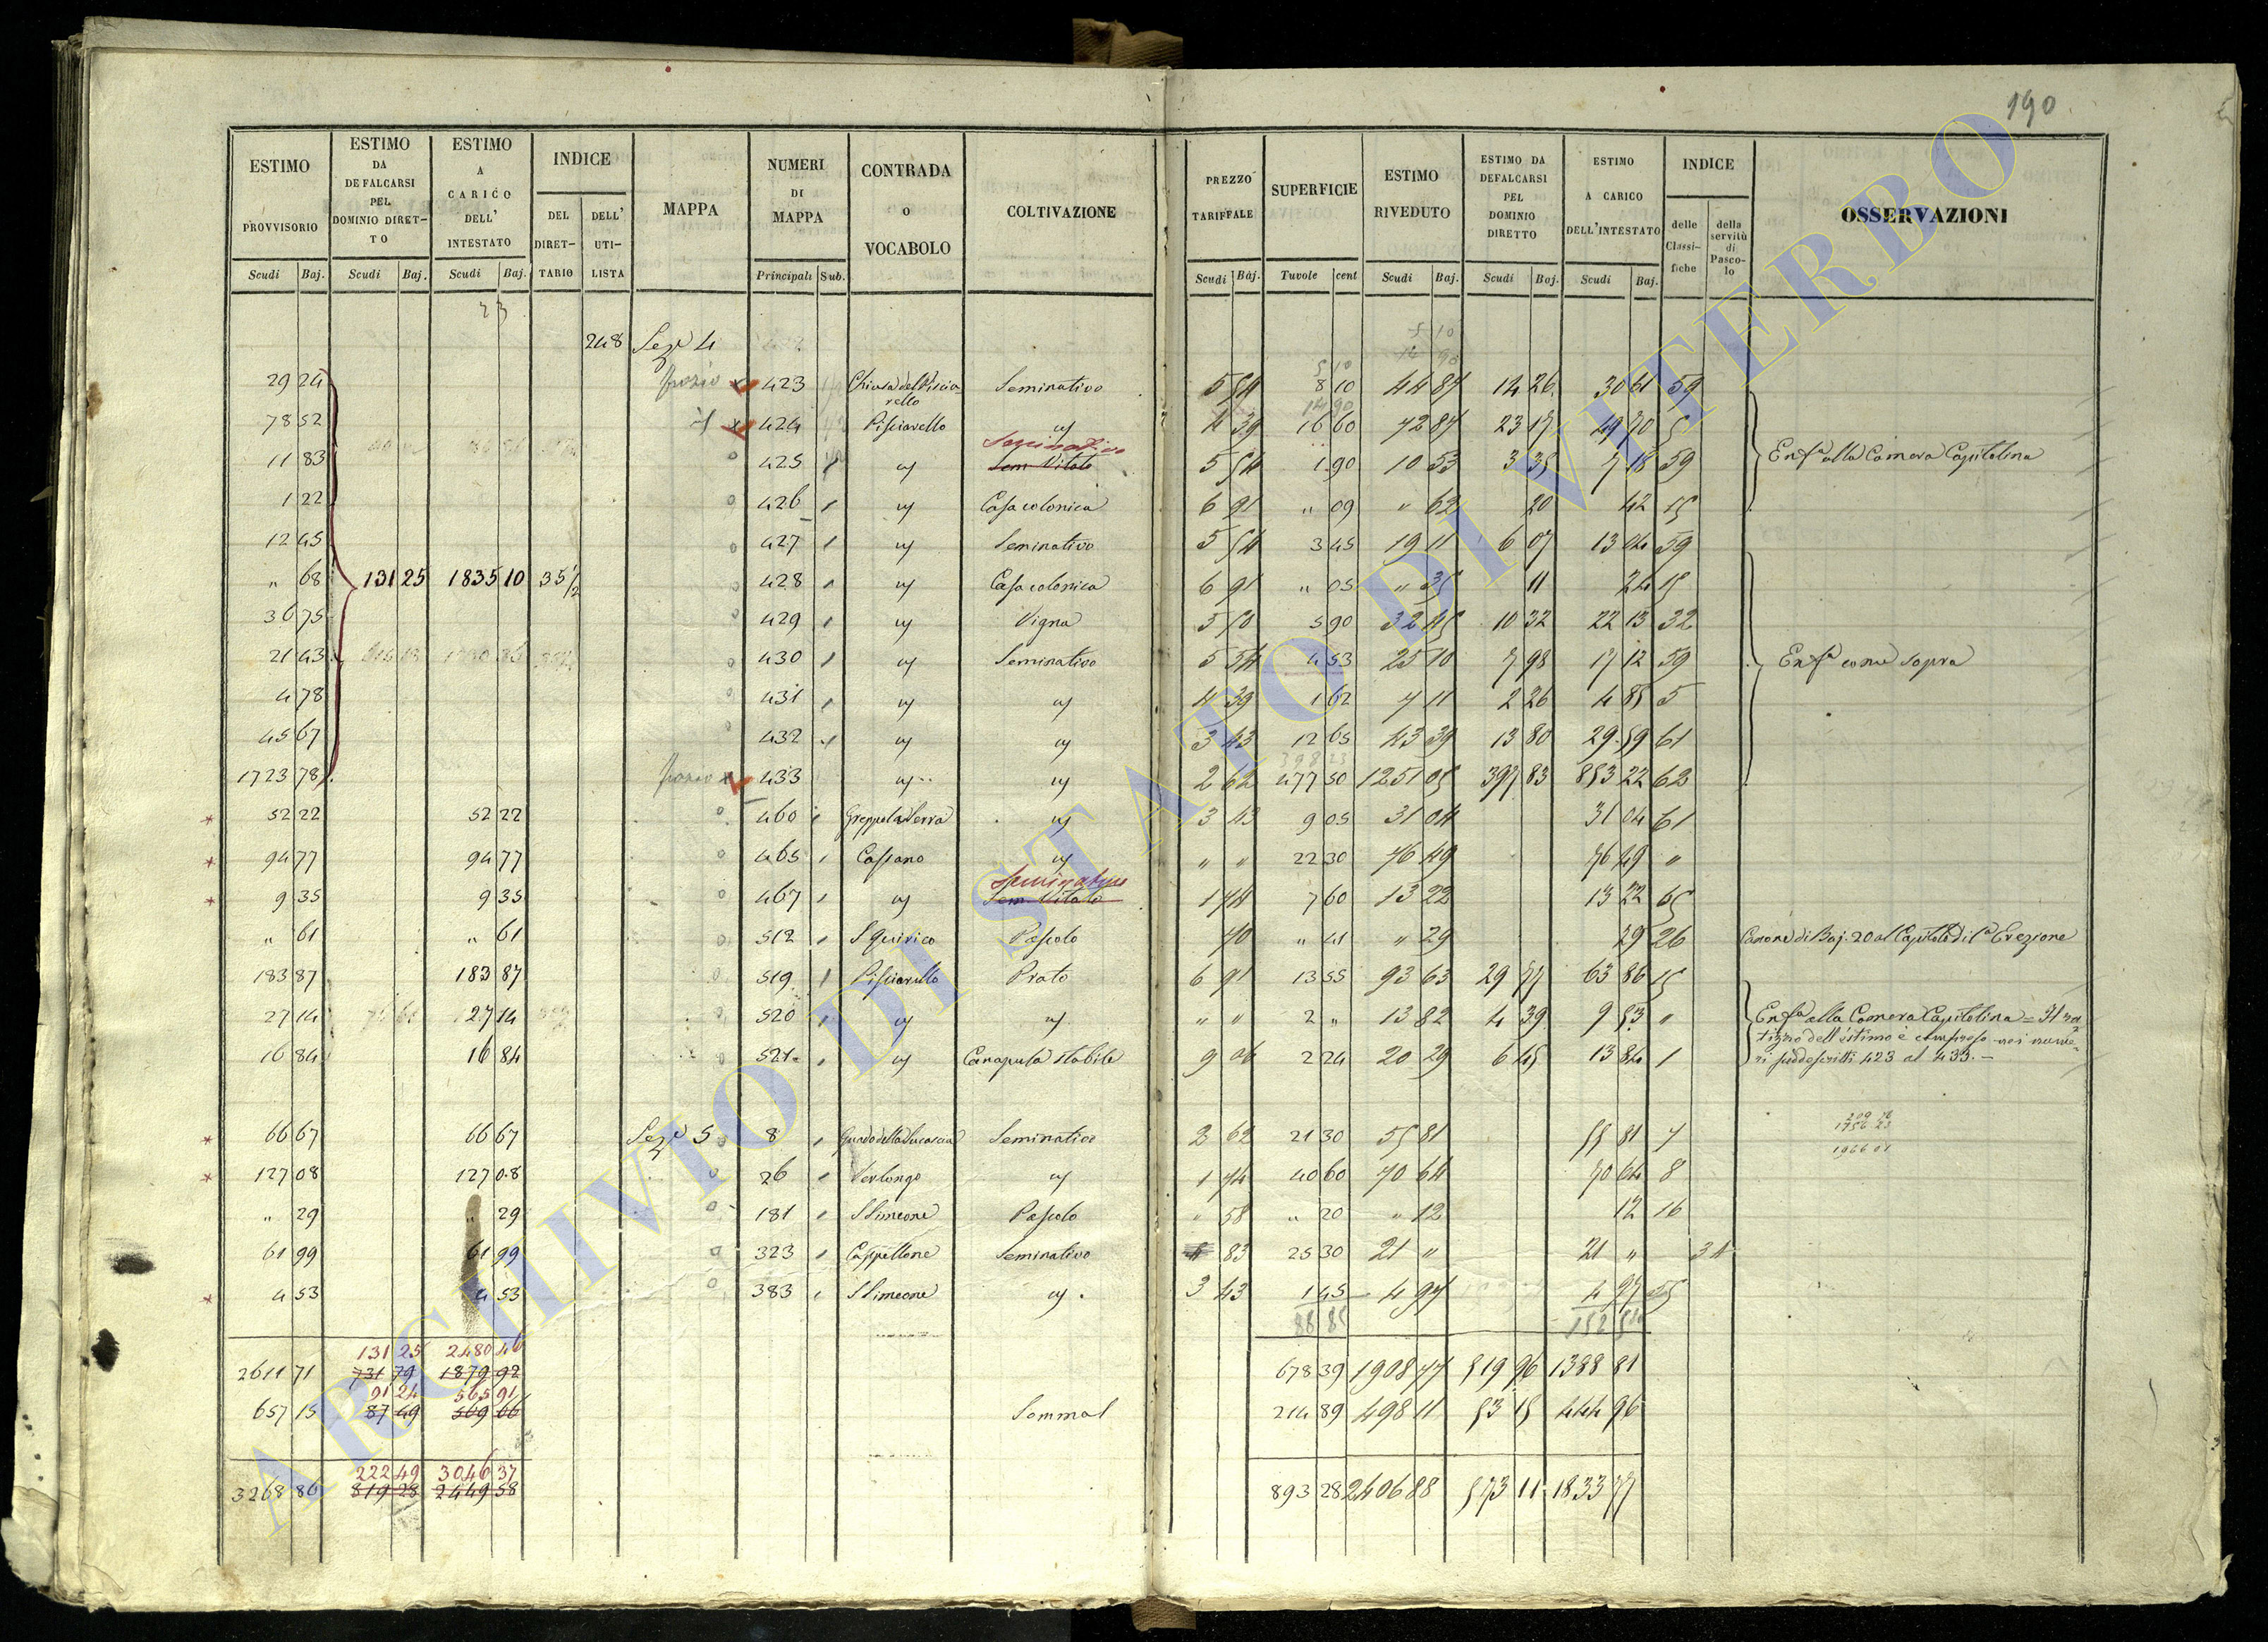 190
ESTIMO PROVVISORIO Scudi Baj. | ESTIMO DA DEFALCARSI PEL DOMINIO DIRETTO Scudi Baj. | ESTIMO A CARICO DELL' INTESTATO Scudi Baj. | INDICE DEL DIRETTARIO DELL' UTILISTA | MAPPA | NUMERI DI MAPPA Principali Sub. | CONTRADA O VOCABOLO | COLTIVAZIONE | PREZZO TARIFFALE Scudi Baj. | SUPERFICIE Tuvole cent | ESTIMO RIVEDUTO Scudi Baj. | ESTIMO DA DEFALCARSI PEL DOMINIO DIRETTO Scudi Baj. | ESTIMO A CARICO DELL'INTESTATO Scudi Baj. | INDICE delle Classifiche della servitù di Pascolo | OSSERVAZIONI
23
248 Sez.e 4
29 24 porzio x 423 Chiusa del Pisciarello Seminativo 5 54 8 10 44 87 14 26 30 61 59
78 52 x 424 Pisciarello 4 39 16 60 72 87 23 17 49 70 5
Seminativo
11 83 425 Sem. Vitato 5 54 1 90 10 53 3 35 7 18 59 Enf.a alla Camera Capitolina
1 22 426 Casa colonica 6 91 " 09 " 62 20 42 15
12 45 427 Seminativo 5 54 3 45 19 11 6 07 13 04 59
" 68 131 25 1835 10 35 1/2 428 Casa colonica 6 91 " 05 " 35 11 24 15
36 75 429 Vigna 5 50 5 90 32 45 10 32 22 13 32
21 43 430 Seminativo 5 54 4 53 25 10 7 98 17 12 59 Enf.a come sopra
4 78 431 4 39 1 62 7 11 2 26 4 85 5
45 67 432 3 43 12 65 43 39 13 80 29 59 61
1723 78 porzio x 433 2 62 477 50 1251 05 397 83 853 22 62
* 52 22 52 22 460 Greppola Serra 3 43 9 05 31 04 31 04 61
* 94 77 94 77 465 Cassano " " 22 30 76 49 76 49 "
Seminativo
* 9 35 9 35 467 Sem. Vitato 1 74 7 60 13 22 13 22 65
" 61 " 61 512 S Quirico Pascolo 70 " 41 " 29 29 26 Canone di Baj. 20 al Capitolo di Erezione
183 87 183 87 519 Pisciarello Prato 6 91 13 55 93 63 29 77 63 86 15
27 14 27 14 520 " " 2 " 13 82 4 39 9 53 " Enf.a alla Camera Capitolina = Il
tizzo dell'estimo è compreso nei nume-
16 84 16 84 521 Canapula stabile 9 06 2 24 20 29 6 45 13 84 1 ri suddescritti 423 al 433. —
* 66 67 66 67 Sez.e 5 8 Seminativo 2 62 21 30 55 81 55 81 7
* 127 08 127 08 26 Verlongo 1 74 40 60 70 64 70 64 8
" 29 " 29 181 S Simeone Pascolo " 58 " 20 " 12 12 16
61 99 61 99 323 Cappellone Seminativo 83 25 30 21 " 21 " 34
* 4 53 4 53 383 S Simeone 3 43 1 45 4 97 4 97 55
131 25 2480 46
2611 71 731 79 1879 92 678 39 1908 77 519 96 1388 81
91 24 565 91
657 15 87 49 569 66 Sommal 214 89 498 11 53 15 444 96
222 49 3046 37
3268 86 819 28 2449 58 893 28 2406 88 573 11 1833 77
ARCHIVIO DI STATO DI VITERBO